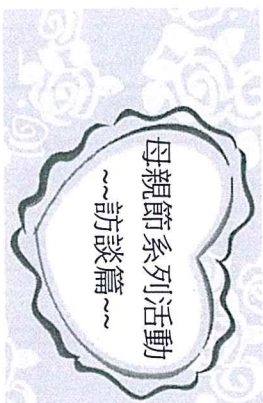 母親節系列活動
~~訪談篇~~